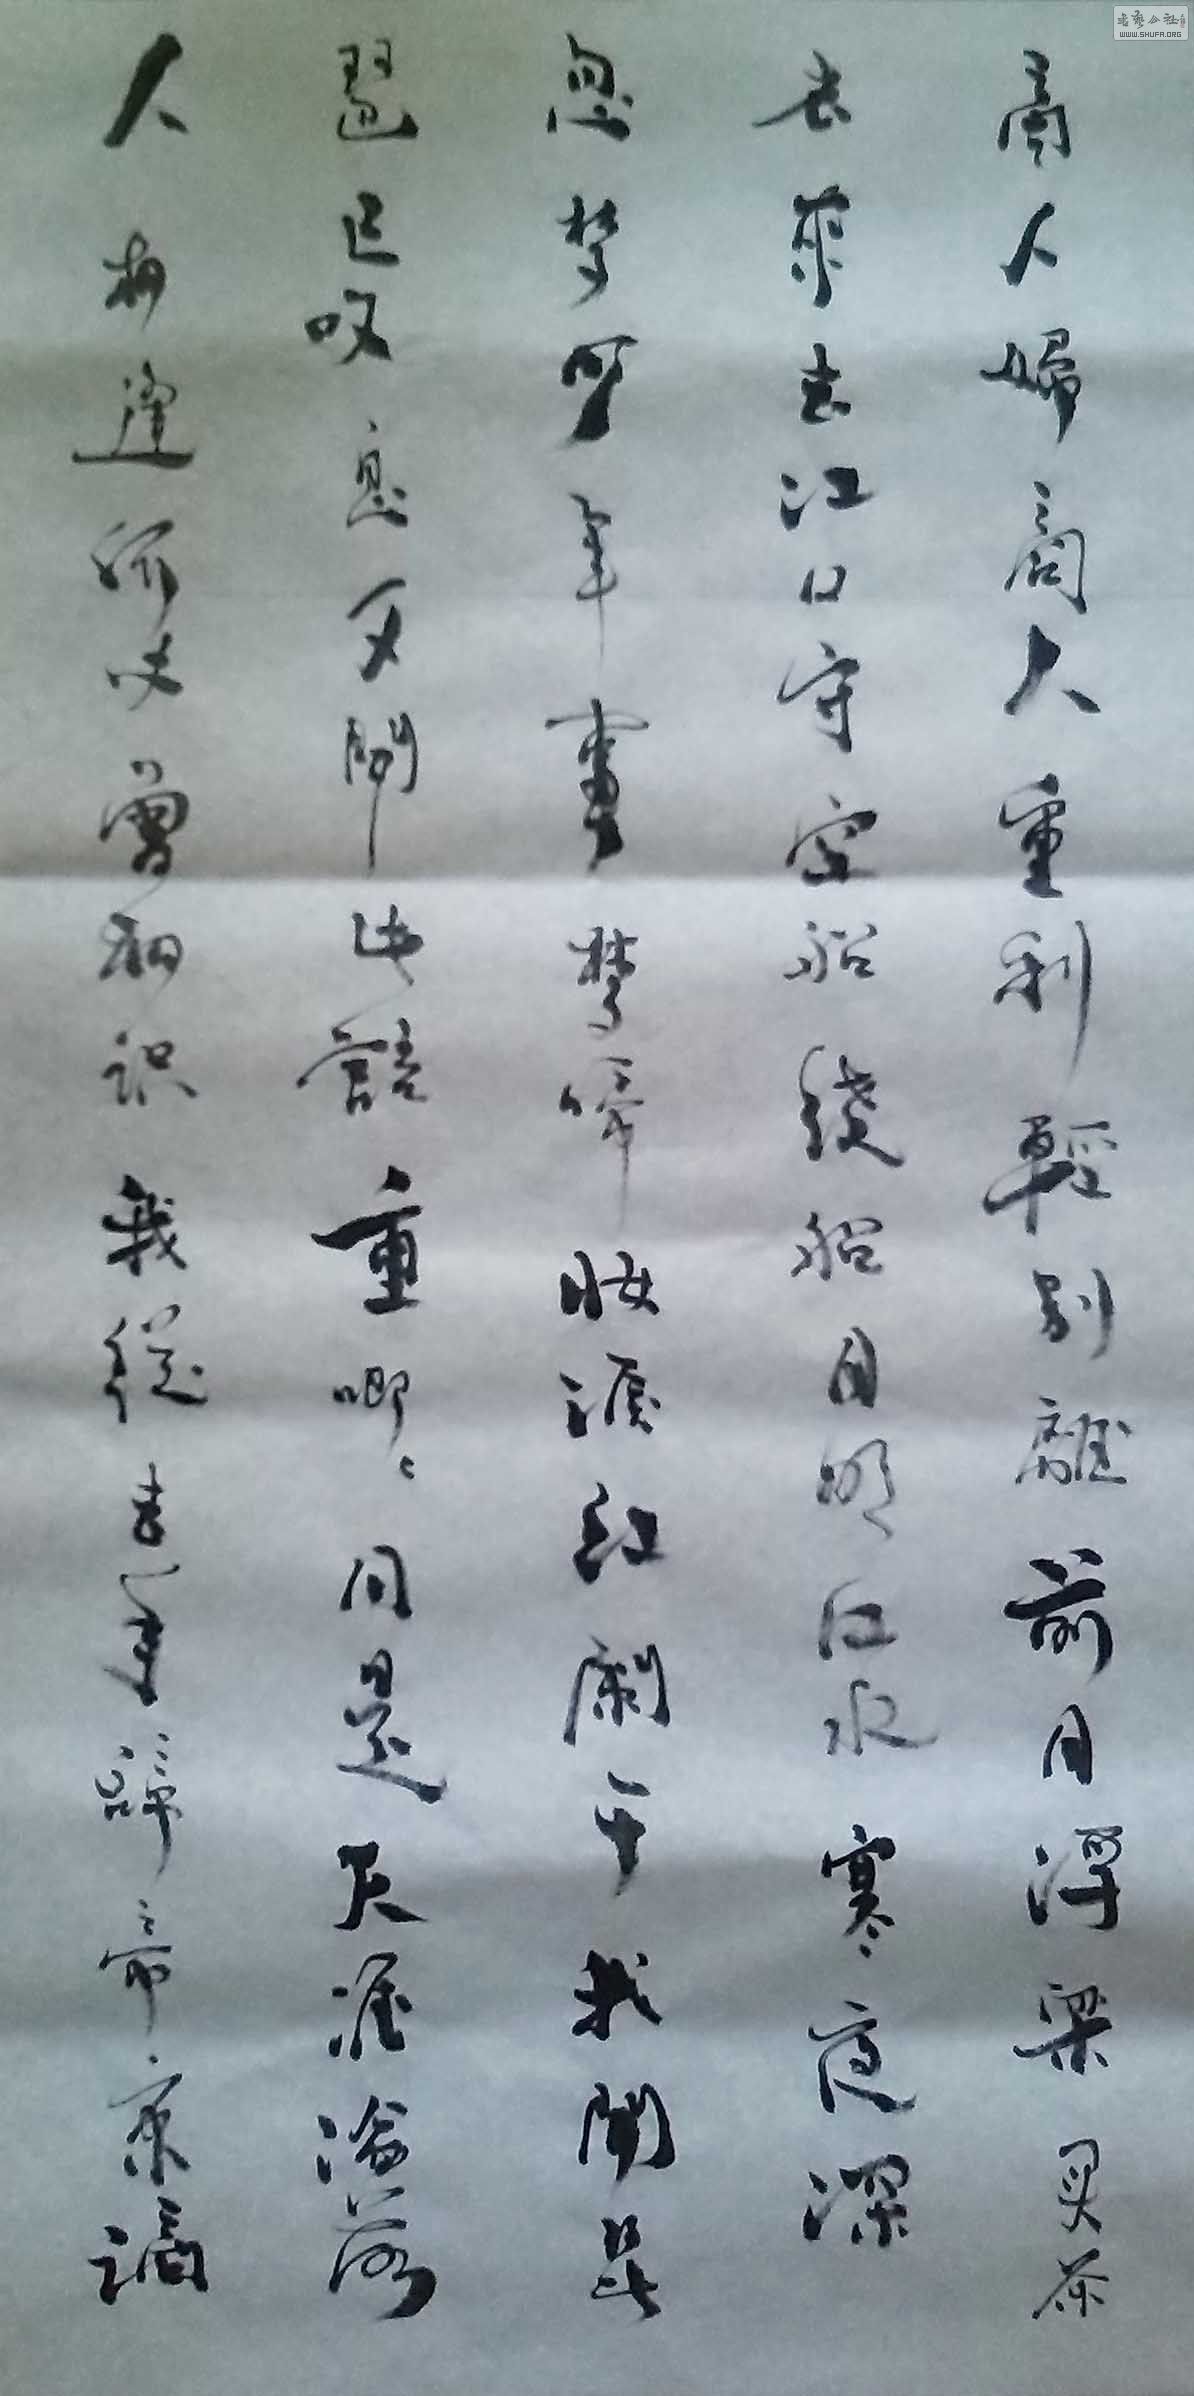 商人婦商人重利輕別離前月浮梁买茶
去來去江口守空船繞船月明江水寒夜深
忽夢少年事夢啼妝淚紅闌干我聞琵
琶已嘆息又聞此語重唧〻同是天涯淪落
人相逢何必曾相識我從去年辭帝京謫
書藝公社
WWW.SHUFA.ORG